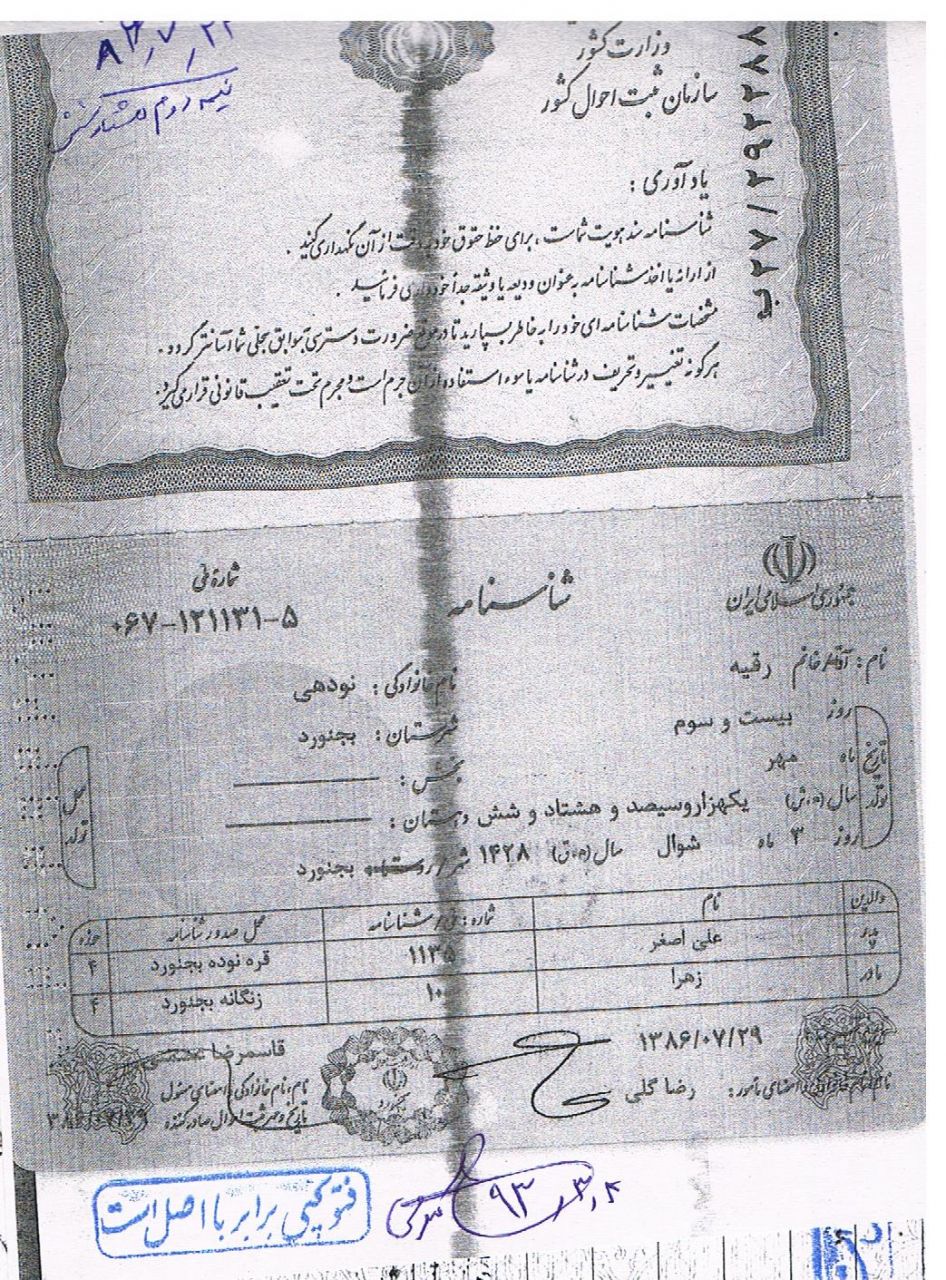 وزارت کشور
سازمان ثبت احوال کشور
ب۲۷/۲۹۲۲۸۸
۸۶/۷/۲۲
نیمه دوم هشتاد و شش
یادآوری :
شناسنامه سند هویت شماست ، برای حفظ حقوق خود بدقت از آن نگهداری کنید .
از ارائه یا اخذ شناسنامه به عنوان ودیعه یا وثیقه جداً خودداری فرمائید .
مشخصات شناسنامه ای خود را به خاطر بسپارید تا در موقع ضرورت دسترسی بسوابق سجلی شما آسانتر گردد .
هرگونه تغییر و تحریف در شناسنامه یا سوء استفاده از آن جرم است و مجرم تحت تعقیب قانونی قرار می گیرد.
جمهوری اسلامی ایران
شناسنامه
شماره ملی
۰۶۷-۱۲۱۱۳۱-۵
نام : آقا/خانم رقیه
نام خانوادگی : نودهی
تاریخ تولد
روز بیست و سوم
ماه مهر
سال (ه.ش) یکهزاروسیصد و هشتاد و شش
روز ۳ ماه شوال سال (ه.ق) ۱۴۲۸
محل تولد
شهرستان : بجنورد
بخش :
دهستان :
شهر/روستا بجنورد
والدین نام شماره : ملی/شناسنامه محل صدور شناسنامه حوزه
پدر علی اصغر ۱۱۳۵ قره نوده بجنورد ۴
مادر زهرا ۱۰ زنگانه بجنورد ۴
۱۳۸۶/۰۷/۲۹
نام، نام خانوادگی و امضای مأمور : رضا گلی
قاسمرضا
نام، نام خانوادگی، امضای مسئول
تاریخ و مهر ثبت احوال صادر کننده
۱۳۸۶/۰۷/۲۹
فتوکپی برابر با اصل است
۹۳/۳/۴